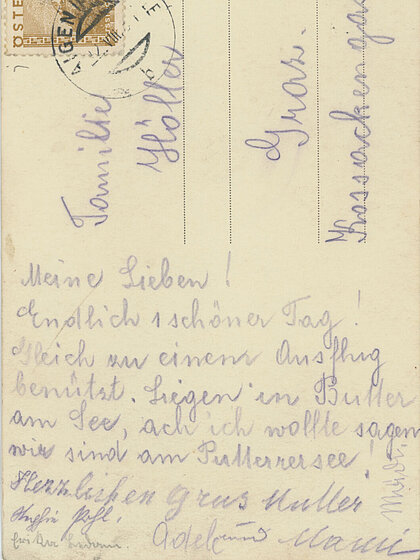 ÖSTE
AIGEN I
Familie
Höller
Graz.
Kossackenga
Meine Lieben!
Endlich 1 schöner Tag!
Gleich zu einem Ausflug
benützt. Liegen in Butter
am See, ach ich wollte sagen
wir sind am Putterersee!
Herzlichen Grus Mutter
Pohl.
Adele und Mami